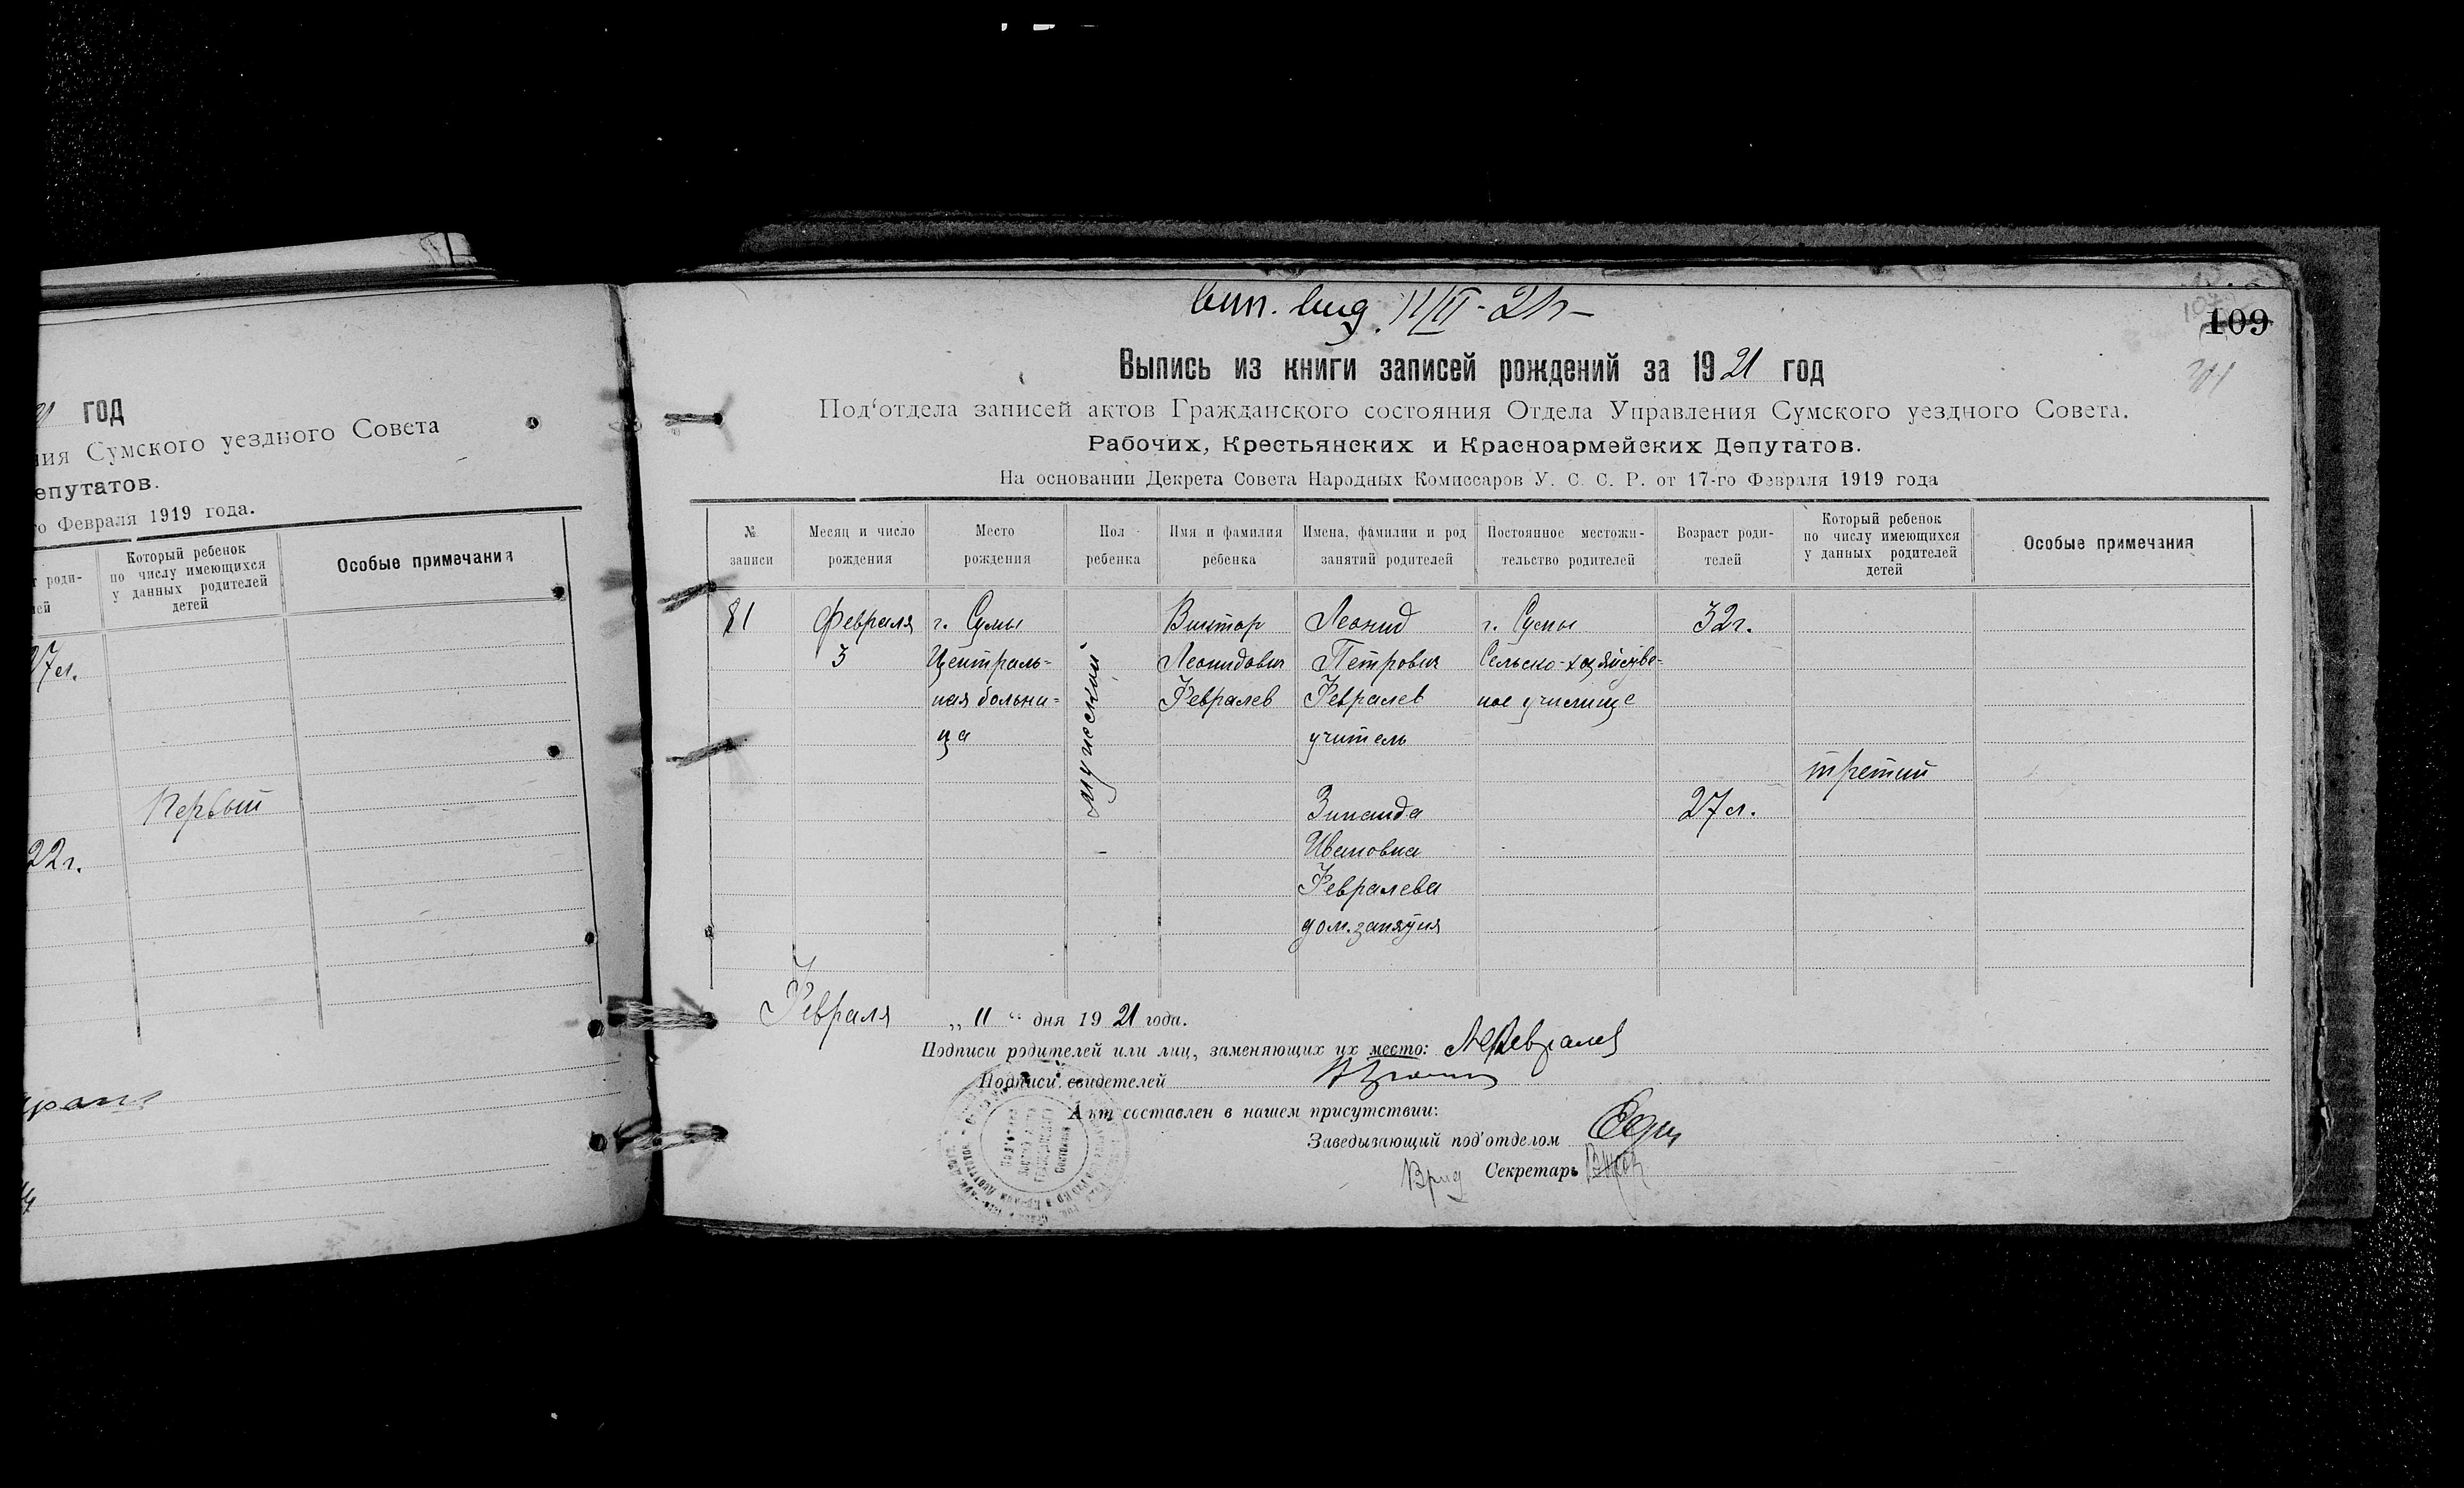 21 год
ния Сумского уездного Совета
епутатов.
го Февраля 1919 года.
т роди-
лей
Который ребенок
по числу имеющихся
у данных родителей
детей
Особые примечания
27л.
Первый
22г.
вып. выд. 11/II-21г-
109
Выпись из книги записей рождений за 1921 год
Под‘отдела записей актов Гражданского состояния Отдела Управления Сумского уездного Совета.
Рабочих, Крестьянских и Красноармейских Депутатов.
На основании Декрета Совета Народных Комиссаров У. С. С. Р. от 17-го Февраля 1919 года
№ записи
Месяц и число рождения
Место рождения
Пол ребенка
Имя и фамилия ребенка
Имена, фамилии и род занятий родителей
Постоянное местожи-
тельство родителей
Возраст роди-
телей
Который ребенок
по числу имеющихся
у данных родителей
детей
Особые примечания
81
Февраля
3
г. Сумы
Централь-
ная больни-
ца
мужеский
Виктор
Леонидович
Февралев
Леонид
Петрович
Февралев
учитель
Зинаида
Ивановна
Февралева
дом. занятия
г. Сумы
Сельско-хозяйстве-
ное училище
32г.
27л.
третий
Февраля „11“ дня 1921 года.
Подписи родителей или лиц, заменяющих их место: Февралев
Подписи свидетелей
Акт составлен в нашем присутствии:
Заведывающий под'отделом
Врид Секретарь